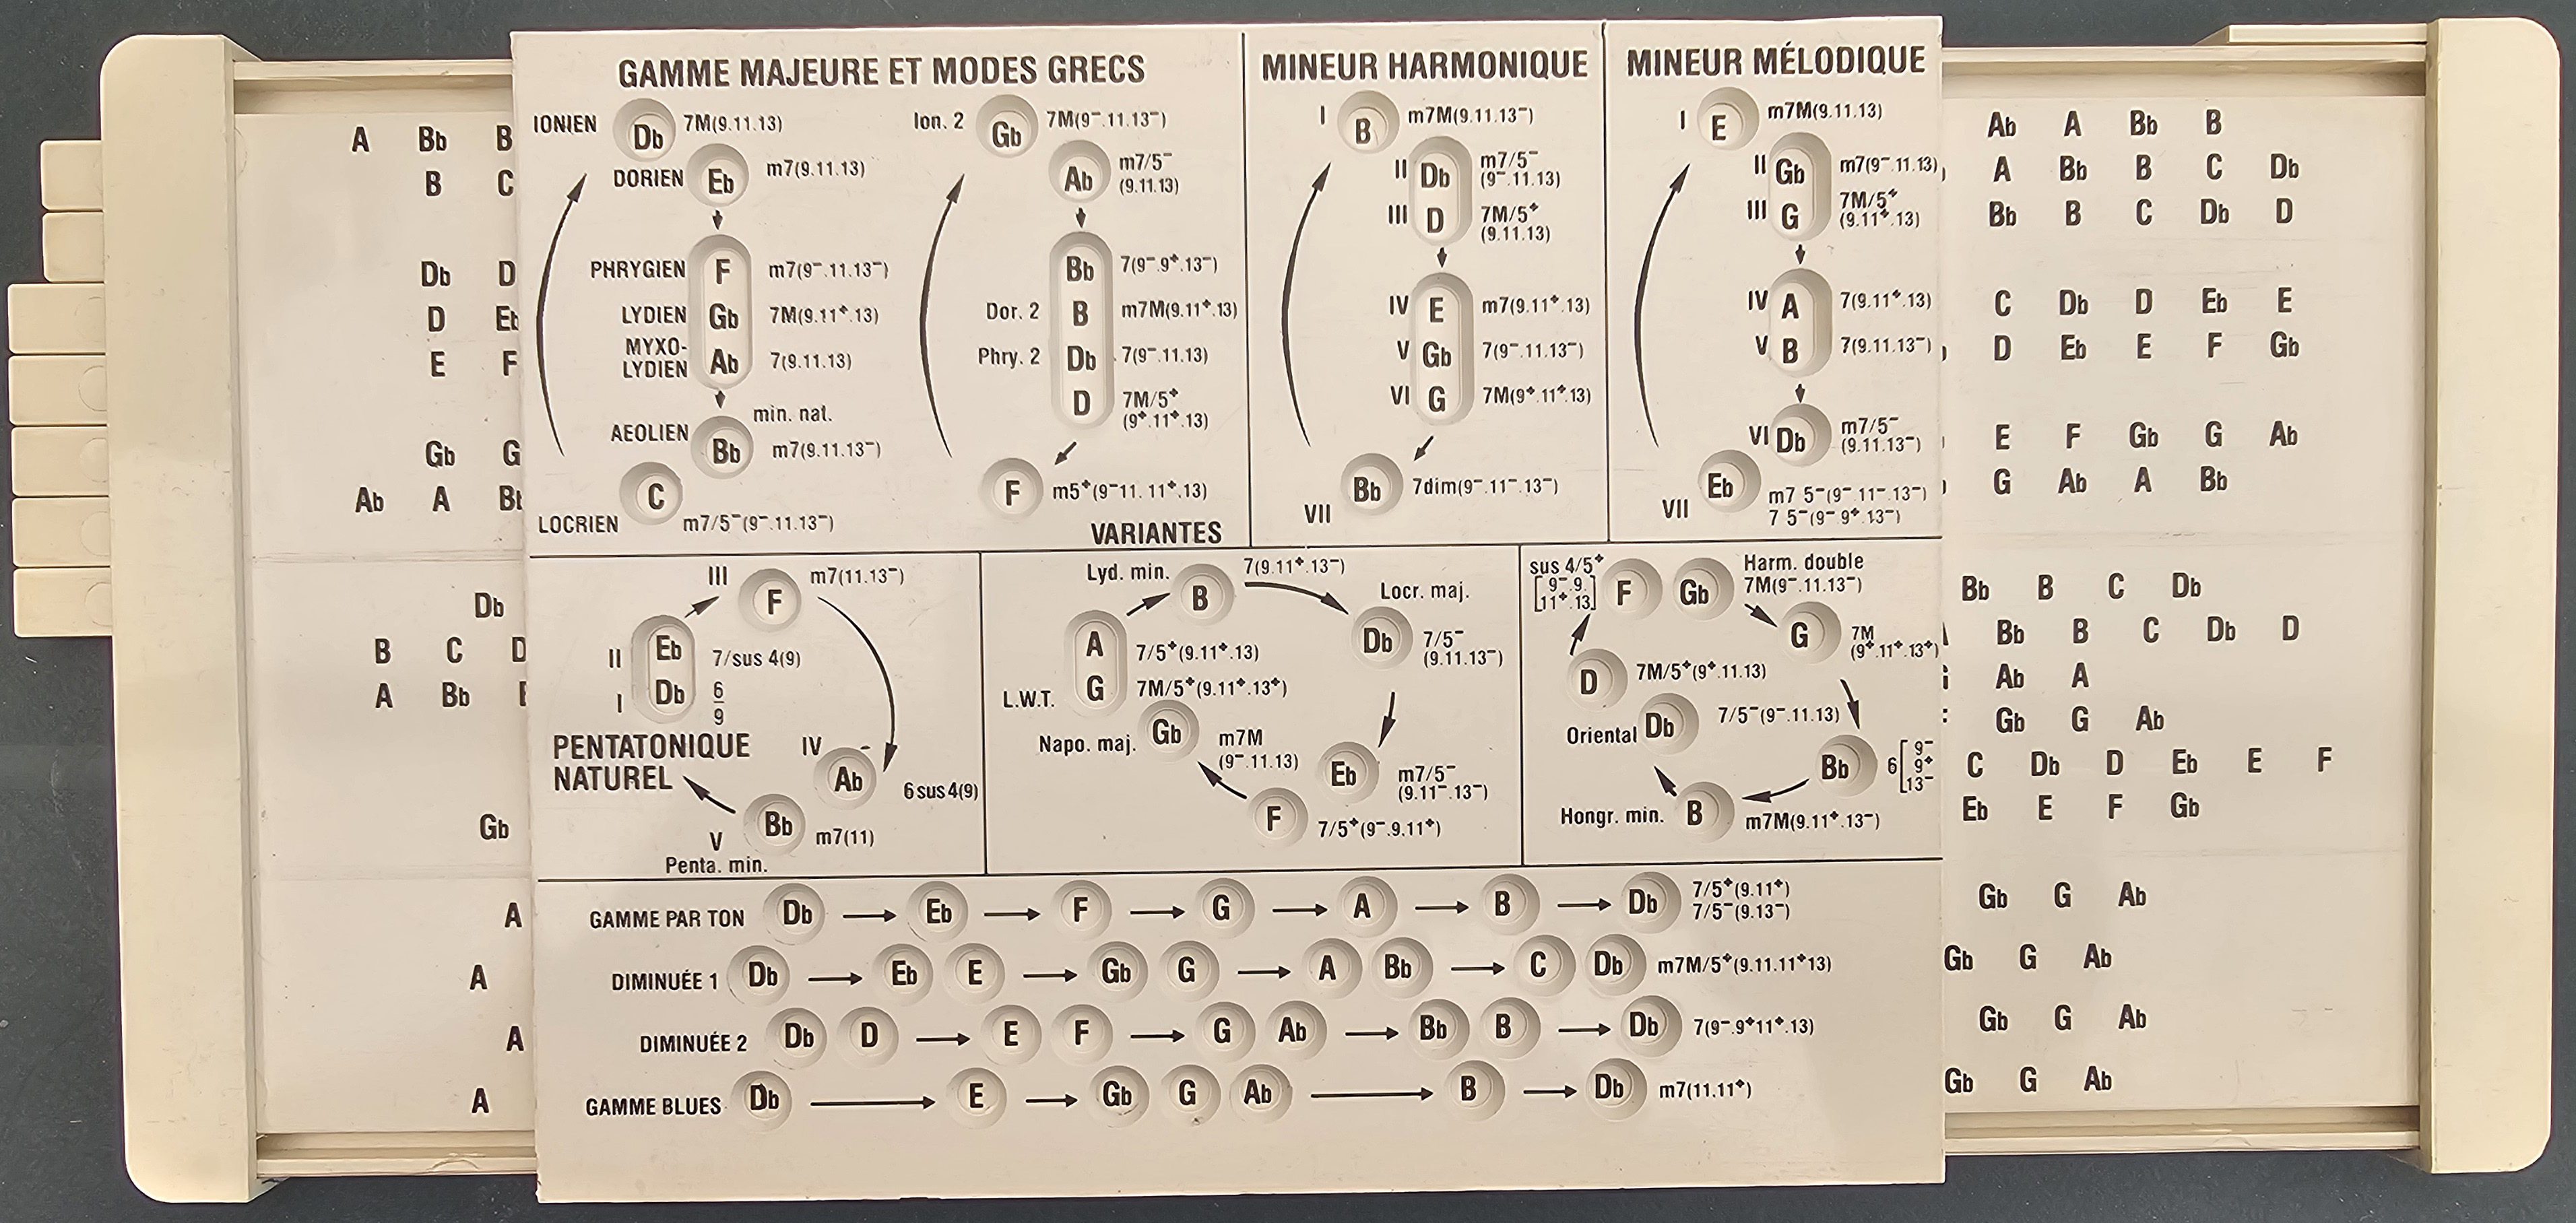 GAMME MAJEURE ET MODES GRECS
IONIEN Db 7M(9.11.13)
DORIEN Eb m7(9.11.13)
PHRYGIEN F m7(9⁻.11.13⁻)
LYDIEN Gb 7M(9.11⁺.13)
MYXO-
LYDIEN Ab 7(9.11.13)
min. nat.
AEOLIEN Bb m7(9.11.13⁻)
C
LOCRIEN m7/5⁻(9⁻.11.13⁻)
Ion. 2 Gb 7M(9⁻.11.13⁻)
Ab m7/5⁻
(9.11.13)
Bb 7(9⁻.9⁺.13⁻)
Dor. 2 B m7M(9.11⁺.13)
Phry. 2 Db 7(9⁻.11.13)
D 7M/5⁺
(9⁺.11⁺.13)
F m5⁺(9⁻11. 11⁺.13)
VARIANTES
MINEUR HARMONIQUE
I B m7M(9.11.13⁻)
II Db m7/5⁻
(9⁻.11.13)
III D 7M/5⁺
(9.11.13)
IV E m7(9.11⁺.13)
V Gb 7(9⁻.11.13⁻)
VI G 7M(9⁺.11⁺.13)
Bb 7dim(9⁻.11⁻.13⁻)
VII
MINEUR MÉLODIQUE
I E m7M(9.11.13)
II Gb m7(9⁻.11.13)
III G 7M/5⁺
(9.11⁺.13)
IV A 7(9.11⁺.13)
V B 7(9.11.13⁻)
VI Db m7/5⁻
(9.11.13⁻)
Eb
VII m7 5⁻(9⁻.11⁻.13⁻)
7 5⁻(9⁻ 9⁺.13⁻)
III F m7(11.13⁻)
II Eb 7/sus 4(9)
I Db 6
9
PENTATONIQUE
NATUREL
IV Ab 6sus4(9)
V Bb m7(11)
Penta. min.
Lyd. min. B 7(9.11⁺.13⁻)
Locr. maj.
Db 7/5⁻
(9.11.13⁻)
A 7/5⁺(9.11⁺.13)
L.W.T. G 7M/5⁺(9.11⁺.13⁺)
Napo. maj. Gb m7M
(9⁻.11.13)
Eb m7/5⁻
(9.11⁻.13⁻)
F 7/5⁺(9⁻.9.11⁺)
sus 4/5⁺
[9⁻.9.
11⁺.13] F
Gb Harm. double
7M(9⁻.11.13⁻)
G 7M
(9⁺.11⁺.13⁺)
D 7M/5⁺(9⁺.11.13)
Oriental Db 7/5⁻(9⁻.11.13)
Bb 6[9⁻
9⁺
13⁻
Hongr. min. B m7M(9.11⁺.13⁻)
GAMME PAR TON Db Eb F G A B Db 7/5⁺(9.11⁺)
7/5⁻(9.13⁻)
DIMINUÉE 1 Db Eb E Gb G A Bb C Db m7M/5⁺(9.11.11⁺13)
DIMINUÉE 2 Db D E F G Ab Bb B Db 7(9⁻.9⁺11⁺.13)
GAMME BLUES Db E Gb G Ab B Db m7(11.11⁺)
A Bb B
B C
Db D
D Eb
E F
Gb G
Ab A Bb
Db
B C D
A Bb
Gb
A
A
A
A
Ab A Bb B
A Bb B C Db
Bb B C Db D
C Db D Eb E
D Eb E F Gb
E F Gb G Ab
G Ab A Bb
Bb B C Db
Bb B C Db D
Ab A
Gb G Ab
C Db D Eb E F
Eb E F Gb
Gb G Ab
Gb G Ab
Gb G Ab
Gb G Ab